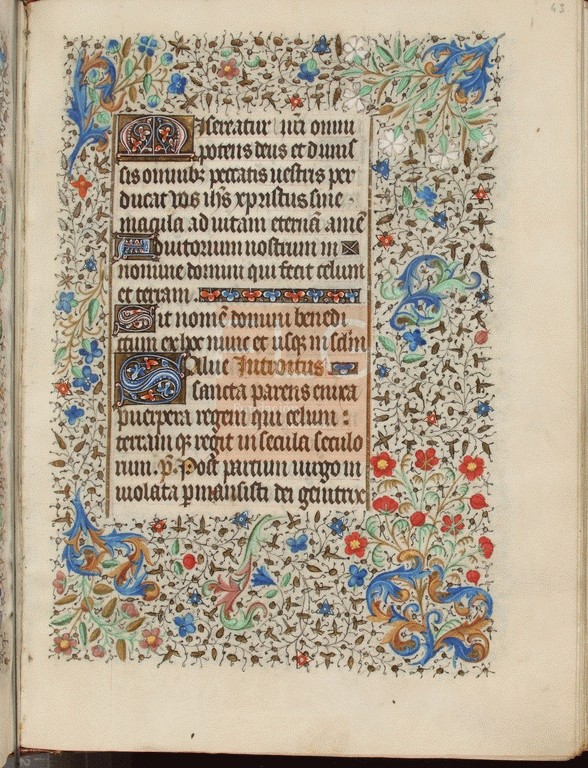 43
Misereatur uri omni
potens deus et dimis
sis omnibꝫ peccatis uestris per
ducat vos ihs xpristus sine
macula ad uitam eternā amē
Adiutorium nostrum in
nomine domini qui fecit celum
et terram
Sit nomē domini benedi
ctum ex hoc nunc et usqꝫ in sclm
Salue Introitus
sancta parens enixa
puerpera regem qui celum
terram qꝫ regit in secula seculo
rum. p̄. Post partum uirgo in
uiolata pmansisti dei genitrix